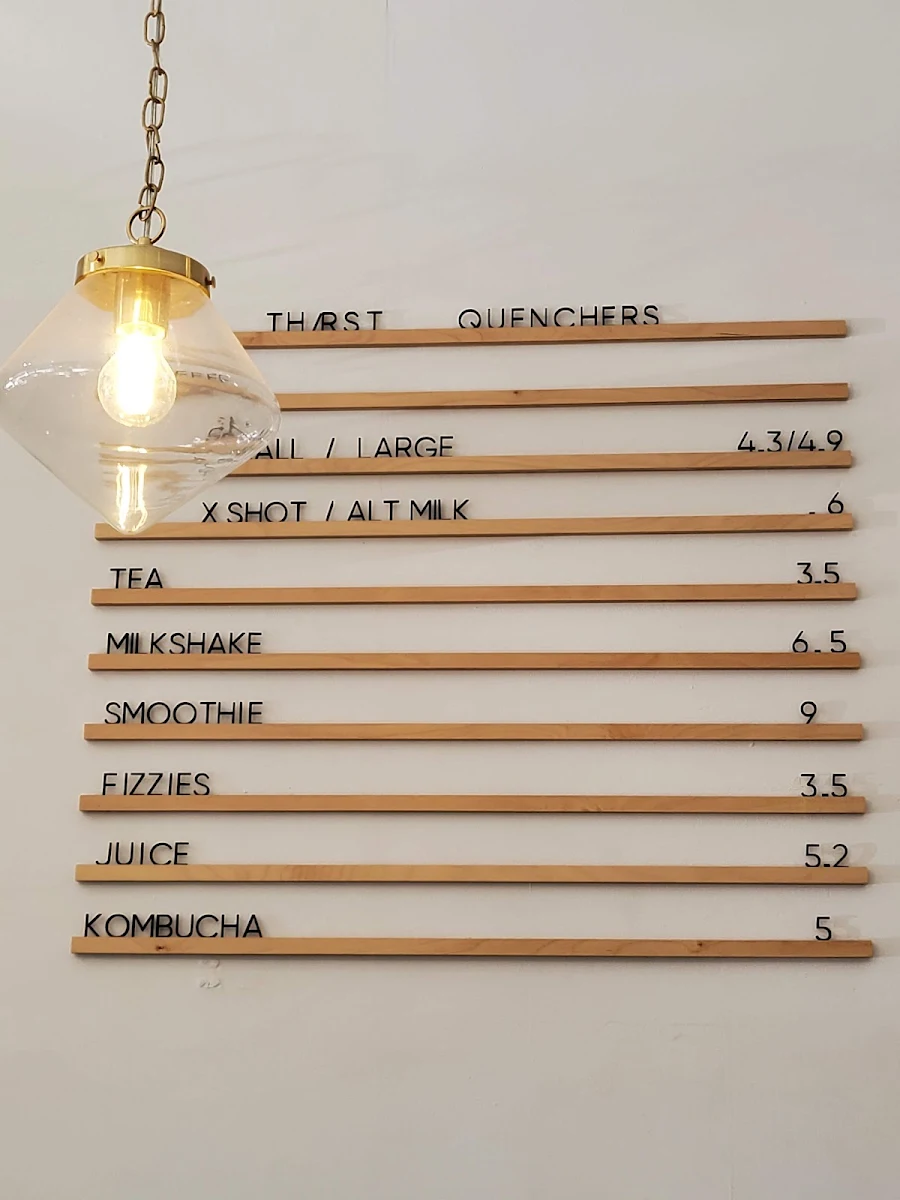 THIRST QUENCHERS
ALL / LARGE 4.3/4.9
X SHOT / ALT MILK .6
TEA 3.5
MILKSHAKE 6.5
SMOOTHIE 9
FIZZIES 3.5
JUICE 5.2
KOMBUCHA 5